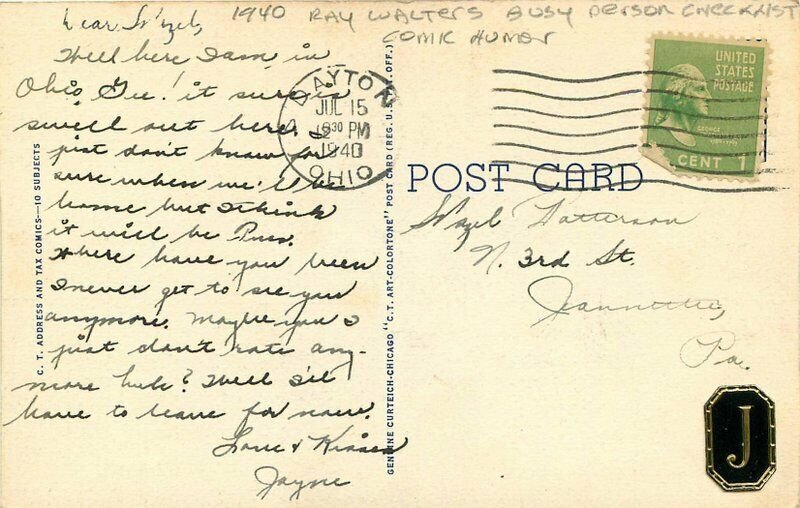 1940 RAY WALTERS BUSY PERSON CHECKLIST
COMIC HUMOR
Dear
Well here I am in
Ohio, Gee! it sure is
swell out here. I
just don't know for
sure when we'll be
home but I think
it will be
Where have you been
I never get to see you
anymore. Maybe you &
just don't rate any-
more huh? Well I'll
have to leave for now.
Love & Kisses
Jayne
DAYTON
JUL 15
12 30 PM
1940
OHIO
UNITED
STATES
POSTAGE
GEORGE
CENT 1
POST CARD
Patterson
N. 3rd St.
Jeannette,
Pa.
J
C. T. ADDRESS AND TAX COMICS—10 SUBJECTS
GENUINE CURTEICH-CHICAGO "C. T. ART-COLORTONE" POST CARD (REG. U. S. PAT. OFF.)